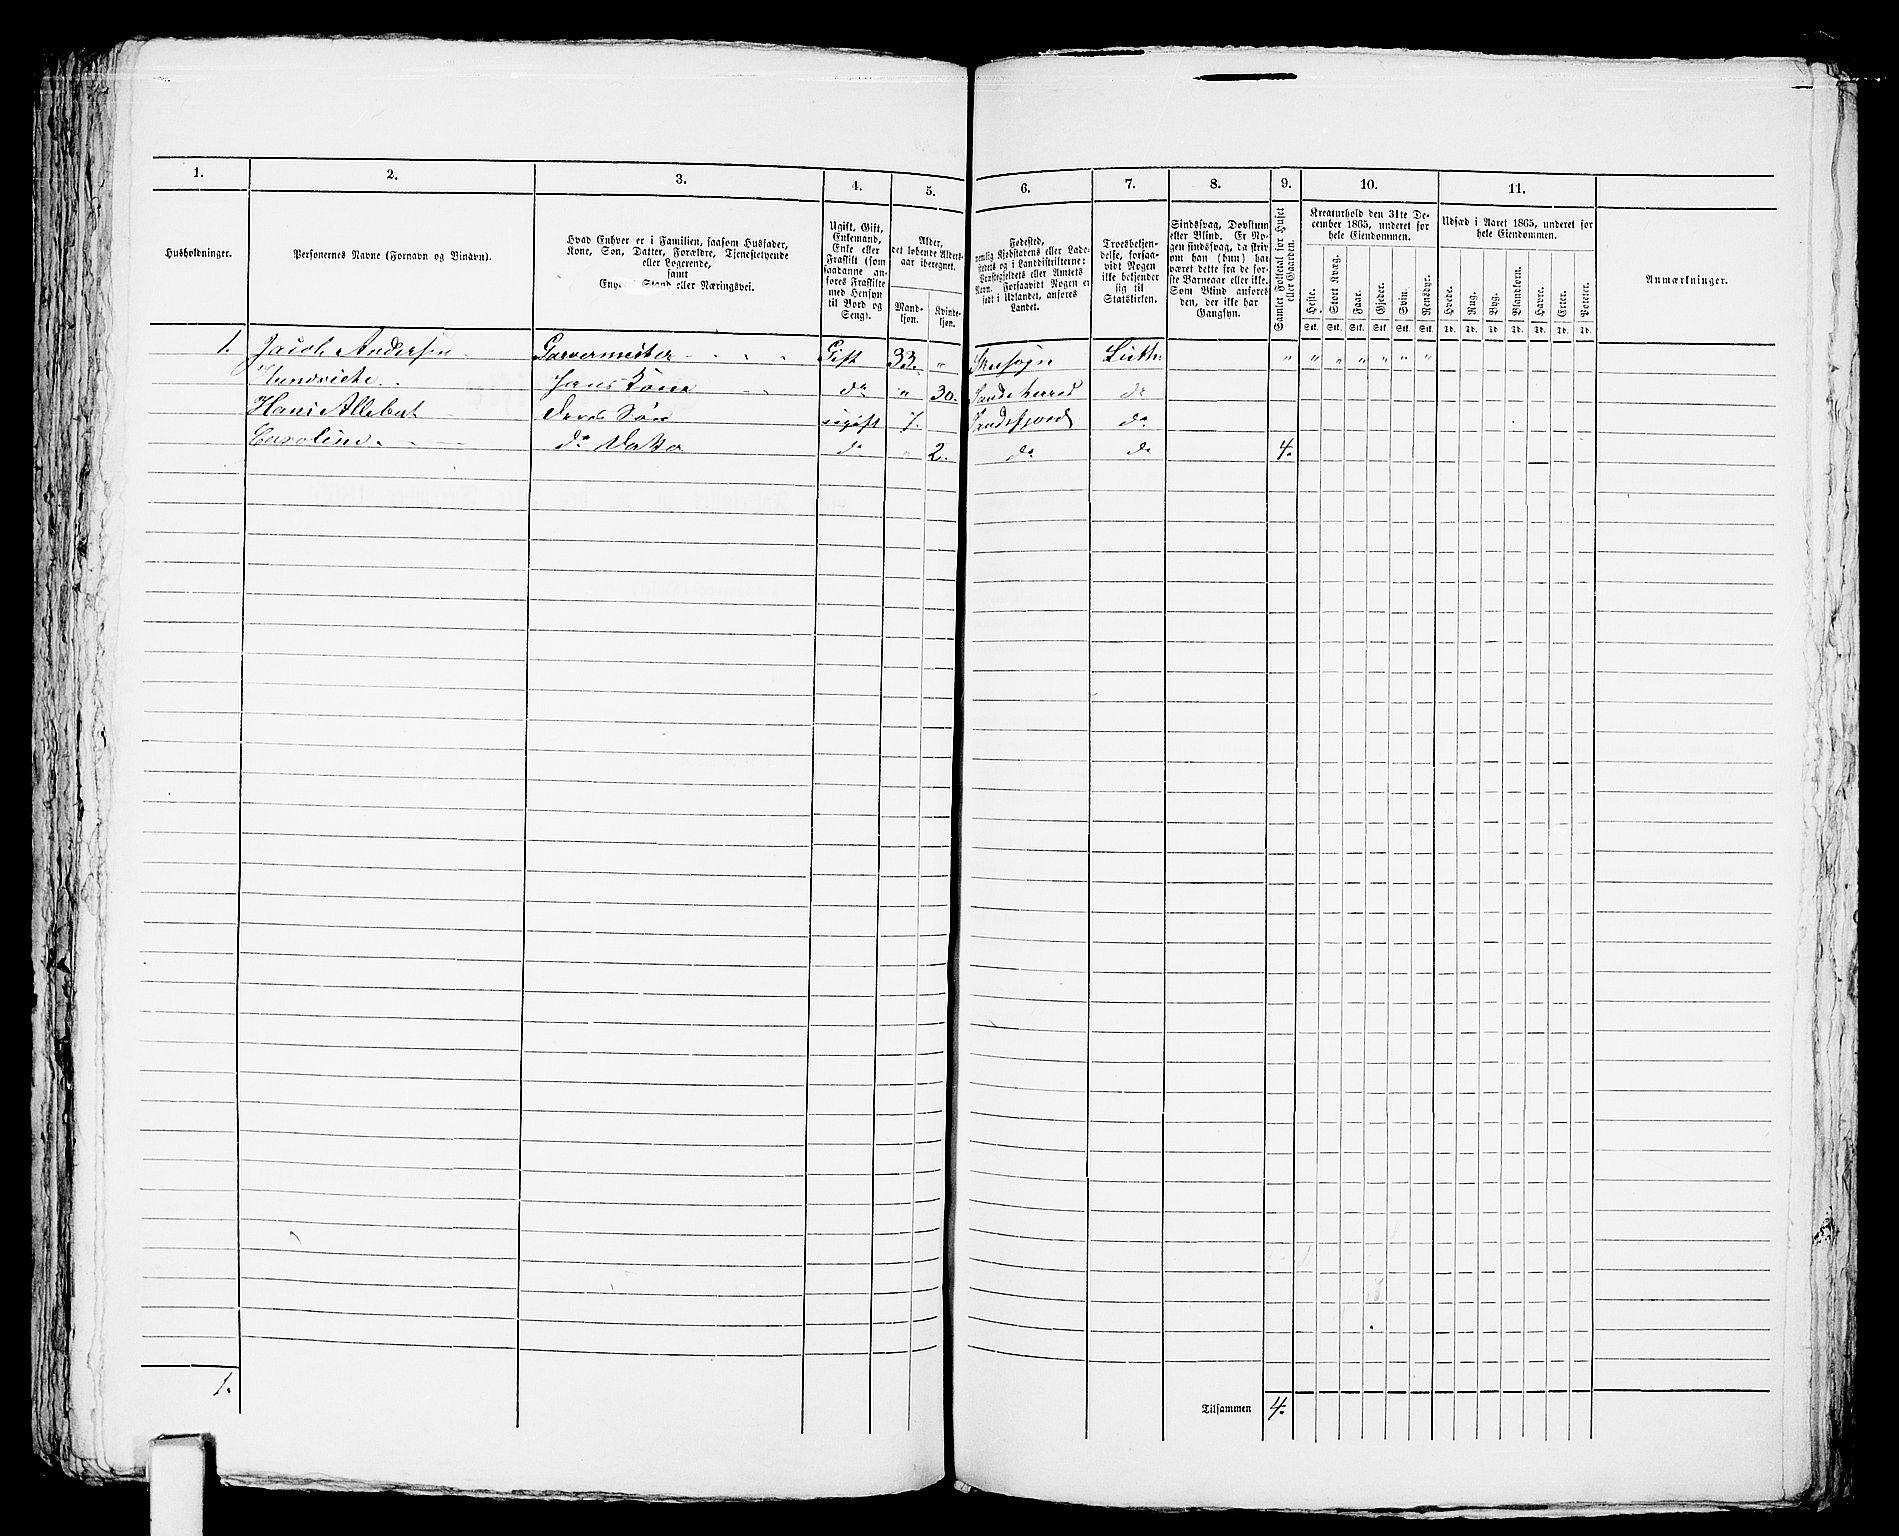 1.
2.
3.
4.
5.
6.
7.
8.
9.
10.
11.
Husholdninger.
Personernes Navne (Fornavn og Binavn).
Hvad Enhver er i Familien, saasom Husfader,
Kone, Søn, Datter, Forældre, Tjenestetyende
eller Logerende,
samt
Enhvers Stand eller Næringsvei.
Ugift, Gift,
Enkemand,
Enke eller
Fraskilt (som
saadanne an-
føres Fraskilte
med Hensyn
til Bord og
Seng).
Alder,
det løbende Alders-
aar iberegnet.
Mand-
kjøn.
Kvinde-
kjøn.
Fødested,
nemlig Kjøbstadens eller Lade-
stedets og i Landdistrikterne:
Præstegjeldets eller Amtets
Navn. Forsaavidt Nogen er
født i Udlandet, anføres
Landet.
Troesbekjen-
delse, forsaa-
vidt Nogen
ikke bekjender
sig til
Statskirken.
Sindssvag, Døvstum
eller Blind. Er No-
gen sindssvag, da skriv
om han (hun) har
været dette fra de før-
ste Barneaar eller ikke.
Som Blind anføres
den, der ikke har
Gangsyn.
Samlet Folketal for Huset
eller Gaarden.
Kreaturhold den 31te De-
cember 1865, underet for
hele Eiendommen.
Heste.
Stort Kvæg.
Faar.
Gjeder.
Svin.
Rensdyr.
Stk. Stk. Stk. Stk. Stk. Stk.
Udsæd i Aaret 1865, underet for
hele Eiendommen.
Hvede.
Rug.
Byg.
Blandkorn.
Havre.
Erter.
Poteter.
Td. Td. Td. Td. Td. Td. Td.
Anmærkninger.
1. Jacob Andersen Garvermester Gift 33. " Luth: " " " " " " "
Hans Kone do " 30. Sandeherred do
Hans Allebert Deres Søn ugift 7. Sandefjord do
Caroline do Datter do " 2. do do 4.
1.
Tilsammen 4.